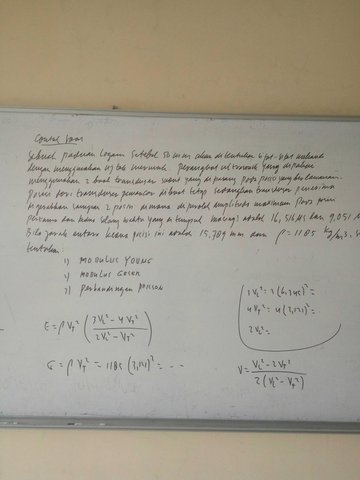 Contoh Soal
Sebuah paduan logam setebal 50 mm akan ditentukan sifat-sifat mekanik
dengan menggunakan uji tak merusak. Perangkat ultrasonik yang dipakai
menggunakan 2 buah transduser yang dipasang pada posisi yang berlawanan.
Posisi dari transduser pemancar dibuat tetap sedangkan transduser penerima
digerakkan sampai 2 posisi dimana diperoleh amplitudo maksimum. Pada posisi
pertama dan kedua selang waktu yang ditempuh masing2 adalah 16,516 μs dan 9,051 μ
Bila jarak antara kedua posisi ini adalah 15.789 mm dan ρ = 1185 kg/m3,
tentukan:
1) MODULUS YOUNG
2) MODULUS GESER
3) Perbandingan POISSON
3VL² = 3(6,345)² =
4VT² = 4(3,131)² =
2VL² =
E = ρ VT² (3VL² - 4VT² / 2VL² - VT²)
G = ρ VT² = 1185 (3,131)² = ---
V = VL² - 2VT² / 2(VL² - VT²)